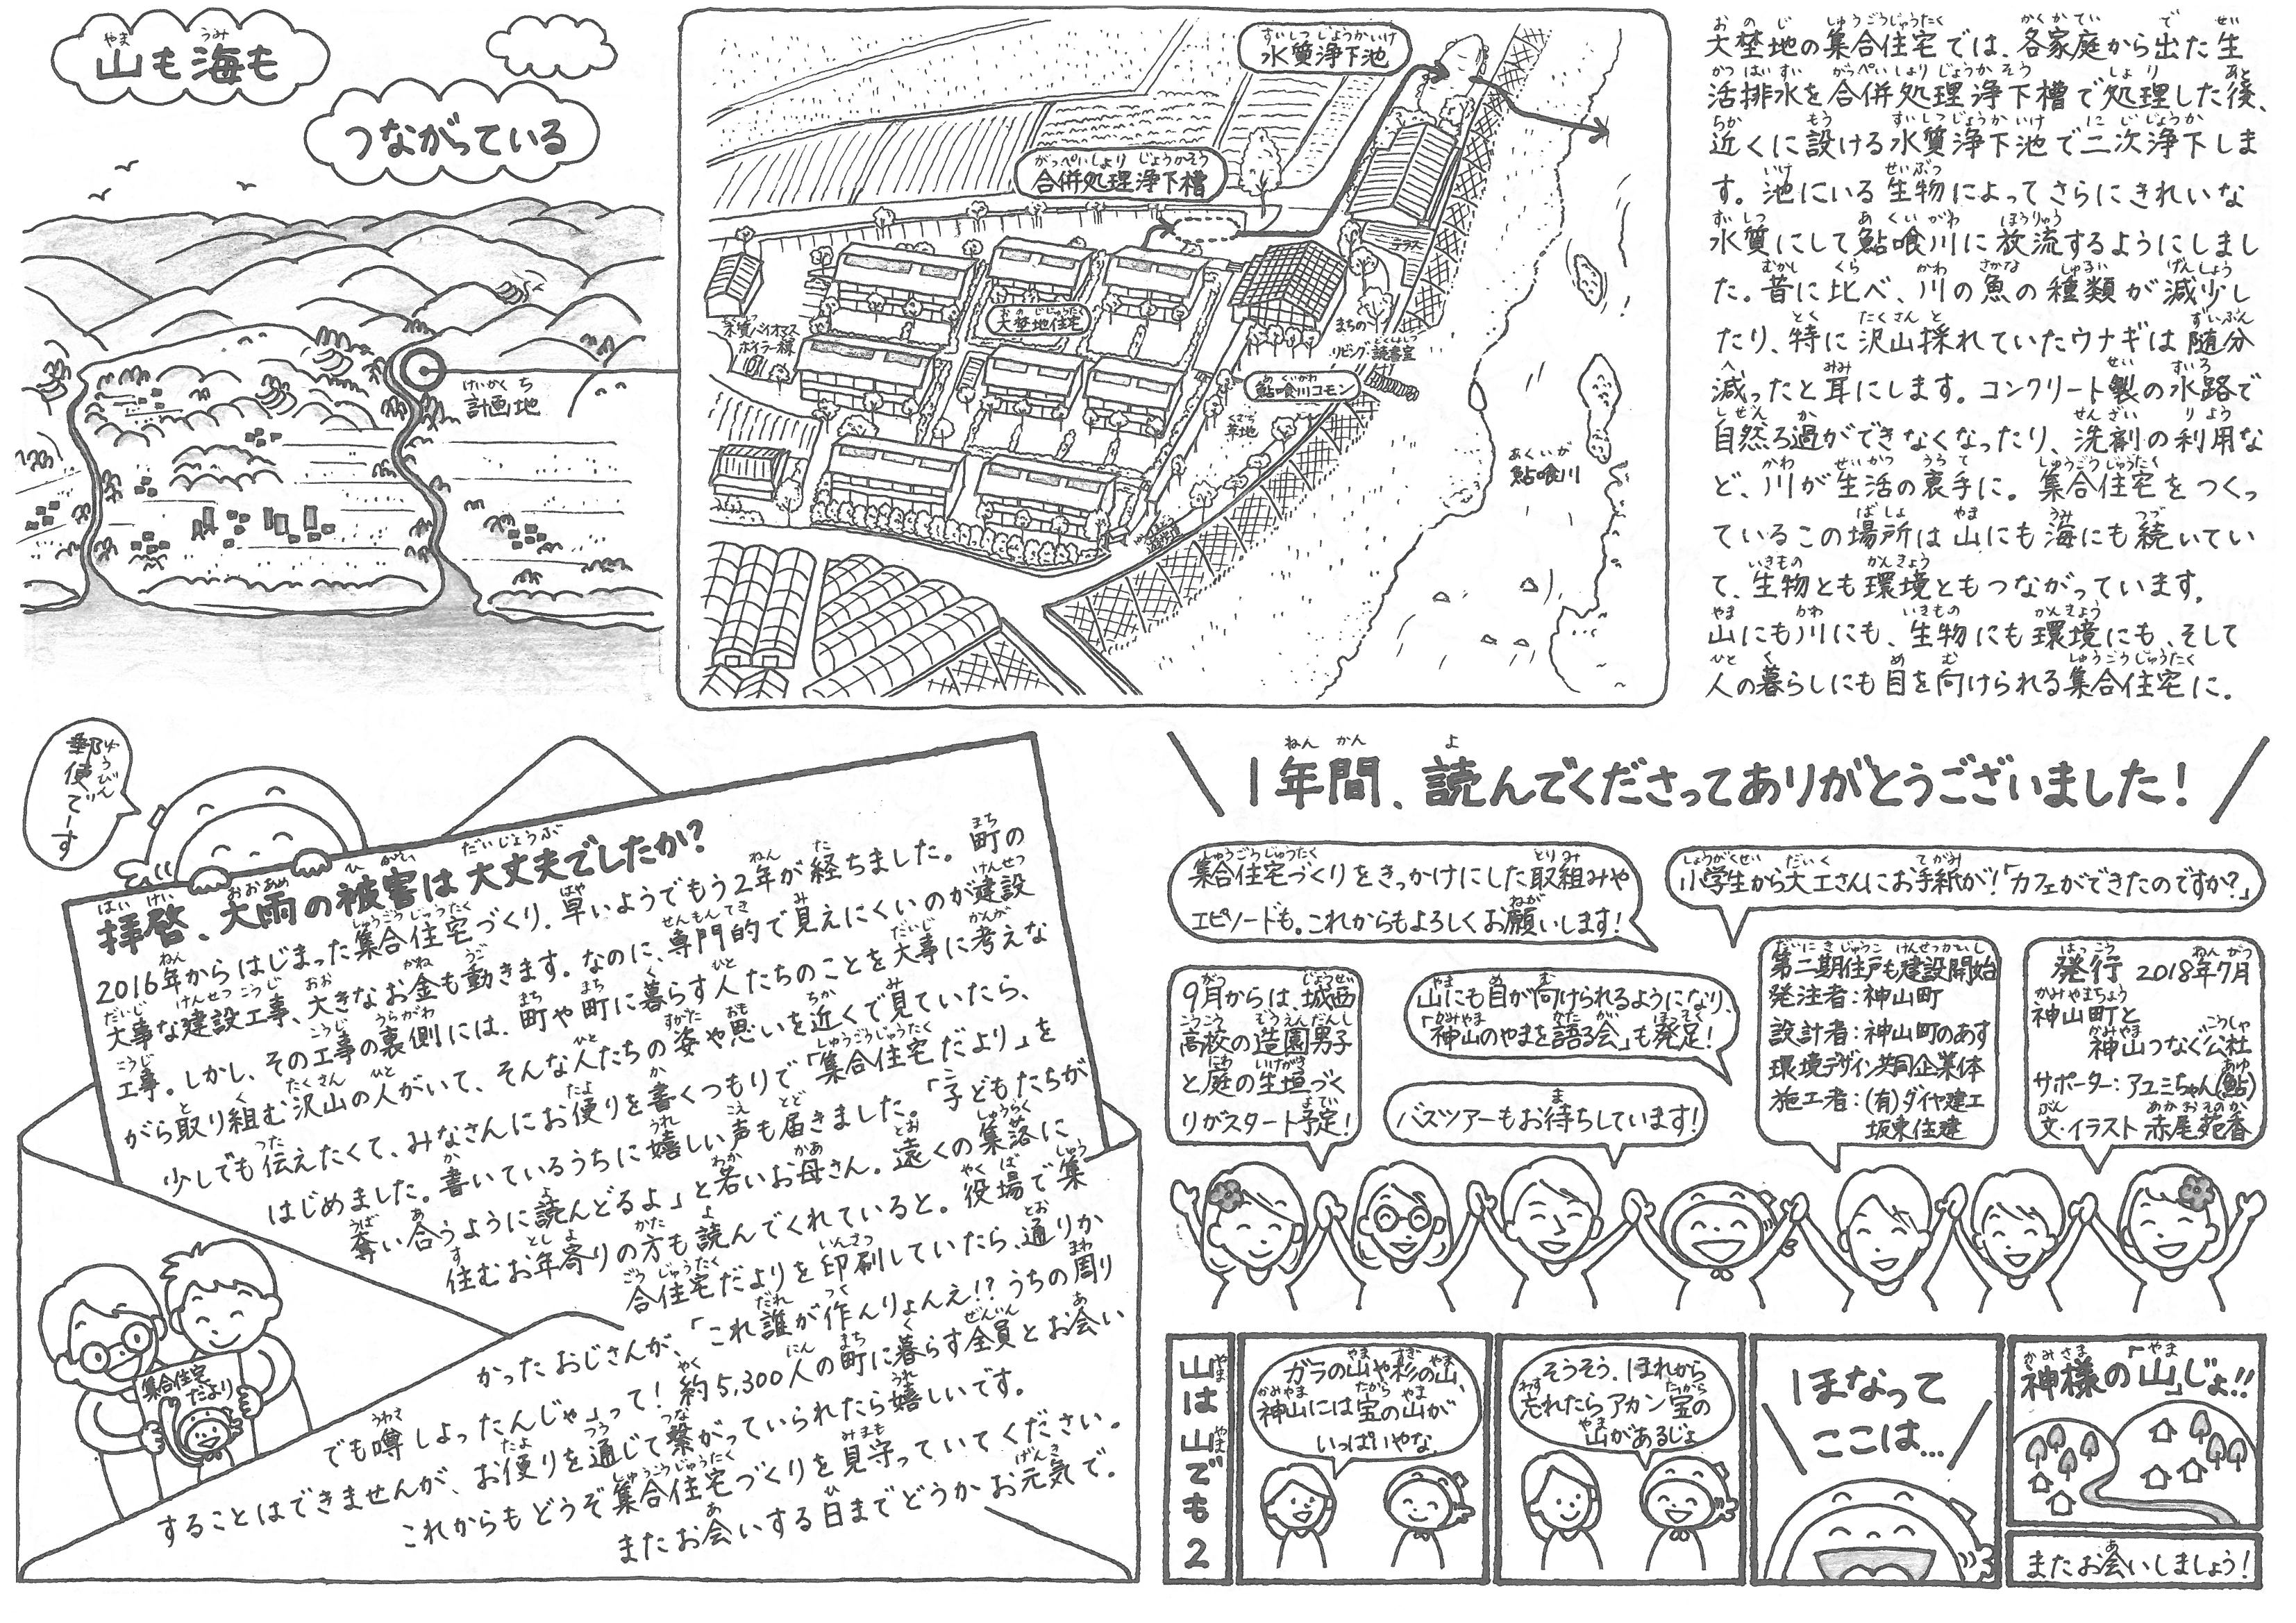 山も海も
つながっている
計画地
水質浄下池
合併処理浄下槽
大埜地住宅
木質バイオマス
ボイラー棟
テラス
まちの
リビング・読書室
鮎喰川コモン
草地
鮎喰川
大埜地の集合住宅では、各家庭から出た生
活排水を合併処理浄下槽で処理した後、
近くに設ける水質浄下池で二次浄下しま
す。池にいる生物によってさらにきれいな
水質にして鮎喰川に放流するようにしまし
た。昔に比べ、川の魚の種類が減少し
たり、特に沢山採れていたウナギは随分
減ったと耳にします。コンクリート製の水路で
自然ろ過ができなくなったり、洗剤の利用な
ど、川が生活の裏手に。集合住宅をつくっ
ているこの場所は山にも海にも続いてい
て、生物とも環境ともつながっています。
山にも川にも、生物にも環境にも、そして
人の暮らしにも目を向けられる集合住宅に。
郵便でーす
拝啓、大雨の被害は大丈夫でしたか?
2016年からはじまった集合住宅づくり、早いようでもう2年が経ちました。町の
大事な建設工事、大きなお金も動きます。なのに、専門的で見えにくいのが建設
工事。しかし、その工事の裏側には、町や町に暮らす人たちのことを大事に考えな
がら取り組む沢山の人がいて、そんな人たちの姿や思いを近くで見ていたら、
少しでも伝えたくて、みなさんにお便りを書くつもりで「集合住宅だより」を
はじめました。書いているうちに嬉しい声も届きました。「子どもたちが
奪い合うように読んどるよ」と若いお母さん。遠くの集落に
住むお年寄りの方も読んでくれていると。役場で集
合住宅だよりを印刷していたら、通りか
かったおじさんが、「これ誰が作んりょんえ!?うちの周り
でも噂しよったんじゃ」って!約5,300人の町に暮らす全員とお会い
することはできませんが、お便りを通じて繋がっていられたら嬉しいです。
これからもどうぞ集合住宅づくりを見守っていてください。
またお会いする日までどうかお元気で。
集合住宅
だより
1年間、読んでくださってありがとうございました!
集合住宅づくりをきっかけにした取組みや
エピソードも。これからもよろしくお願いします!
小学生から大工さんにお手紙が!「カフェができたのですか?」
9月からは、城西
高校の造園男子
と庭の生垣づく
りがスタート予定!
山にも目が向けられるようになり、
「神山のやまを語る会」も発足!
バスツアーもお待ちしています!
第二期住戸も建設開始
発注者:神山町
設計者:神山町のあす
環境デザイン共同企業体
施工者:(有)ダイヤ建工
坂東住建
発行 2018年7月
神山町と
神山つなぐ公社
サポーター:アユミちゃん(鮎)
文・イラスト 赤尾苑香
山は山でも2
ガラの山や杉の山、
神山には宝の山が
いっぱいやな。
そうそう、ほれから
忘れたらアカン宝の
山があるじょ
ほなって
ここは…
神様の「山」じょ!!
またお会いしましょう!